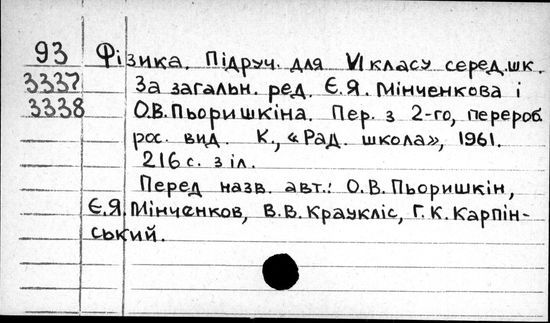 93 Фізика. Підруч. для VI класу серед.шк.
3337 За загальн. ред. Є.Я. Мінченкова і
3338 О.В. Пьоришкіна. Пер. з 2-го, перероб.
рос. вид. К., «Рад. школа», 1961.
216 с. з іл.
Перед назв. авт.: О.В. Пьоришкін,
Є.Я. Мінченков, В.В. Краукліс, Г.К. Карпін-
ський.